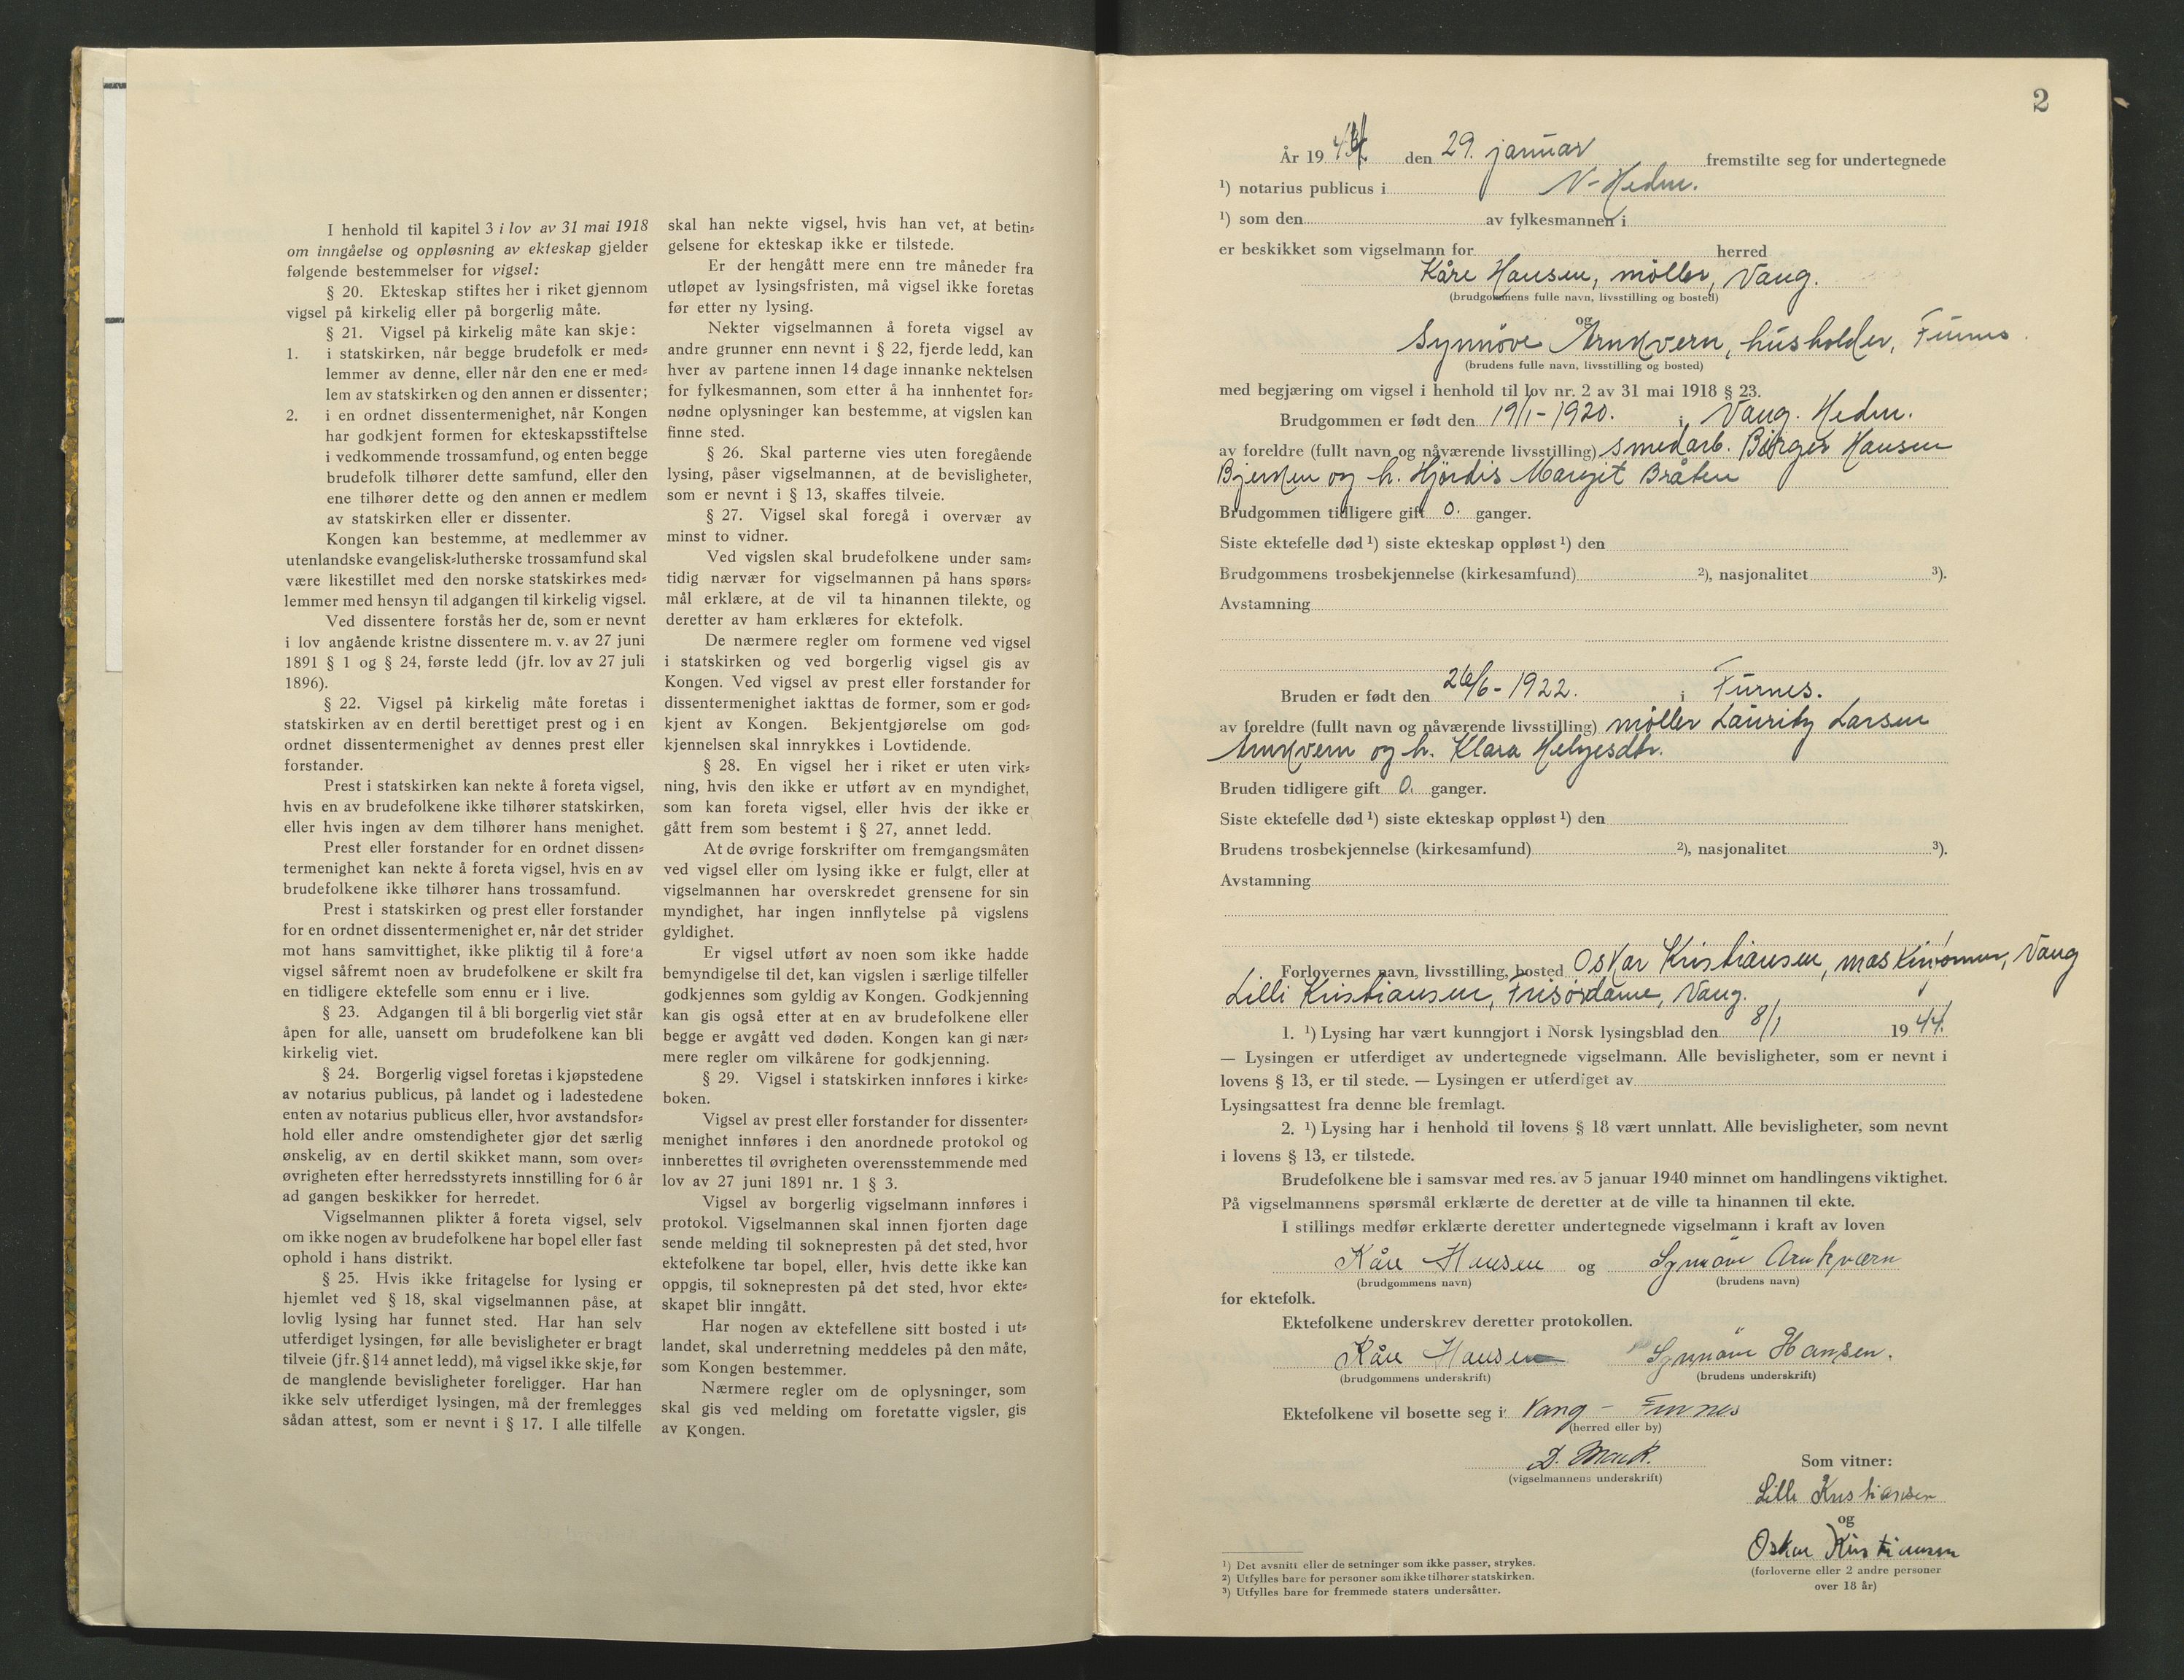 I henhold til kapitel 3 i lov av 31 mai 1918
om inngåelse og oppløsning av ekteskap gjelder
følgende bestemmelser for vigsel:
§ 20. Ekteskap stiftes her i riket gjennom
vigsel på kirkelig eller på borgerlig måte.
§ 21. Vigsel på kirkelig måte kan skje:
1. i statskirken, når begge brudefolk er med-
lemmer av denne, eller når den ene er med-
lem av statskirken og den annen er dissenter;
2. i en ordnet dissentermenighet, når Kongen
har godkjent formen for ekteskapsstiftelse
i vedkommende trossamfund, og enten begge
brudefolk tilhører dette samfund, eller den
ene tilhører dette og den annen er medlem
av statskirken eller er dissenter.
Kongen kan bestemme, at medlemmer av
utenlandske evangelisk-lutherske trossamfund skal
være likestillet med den norske statskirkes med-
lemmer med hensyn til adgangen til kirkelig vigsel.
Ved dissentere forstås her de, som er nevnt
i lov angående kristne dissentere m. v. av 27 juni
1891 § 1 og § 24, første ledd (jfr. lov av 27 juli
1896).
§ 22. Vigsel på kirkelig måte foretas i
statskirken av en dertil berettiget prest og i en
ordnet dissentermenighet av dennes prest eller
forstander.
Prest i statskirken kan nekte å foreta vigsel,
hvis en av brudefolkene ikke tilhører statskirken,
eller hvis ingen av dem tilhører hans menighet.
Prest eller forstander for en ordnet dissen-
termenighet kan nekte å foreta vigsel, hvis en av
brudefolkene ikke tilhører hans trossamfund.
Prest i statskirken og prest eller forstander
for en ordnet dissentermenighet er, når det strider
mot hans samvittighet, ikke pliktig til å foreta
vigsel såfremt noen av brudefolkene er skilt fra
en tidligere ektefelle som ennu er i live.
§ 23. Adgangen til å bli borgerlig viet står
åpen for alle, uansett om brudefolkene kan bli
kirkelig viet.
§ 24. Borgerlig vigsel foretas i kjøpstedene
av notarius publicus, på landet og i ladestedene
enten av notarius publicus eller, hvor avstandsfor-
hold eller andre omstendigheter gjør det særlig
ønskelig, av en dertil skikket mann, som over-
øvrigheten efter herredsstyrets innstilling for 6 år
ad gangen beskikker for herredet.
Vigselmannen plikter å foreta vigsel, selv
om ikke nogen av brudefolkene har bopel eller fast
ophold i hans distrikt.
§ 25. Hvis ikke fritagelse for lysing er
hjemlet ved § 18, skal vigselmannen påse, at
lovlig lysing har funnet sted. Har han selv
utferdiget lysingen, før alle bevisligheter er bragt
tilveie (jfr. § 14 annet ledd), må vigsel ikke skje, før
de manglende bevisligheter foreligger. Har han
ikke selv utferdiget lysingen, må der fremlegges
sådan attest, som er nevnt i § 17. I alle tilfelle
skal han nekte vigsel, hvis han vet, at betin-
gelsene for ekteskap ikke er tilstede.
Er der hengått mere enn tre måneder fra
utløpet av lysingsfristen, må vigsel ikke foretas
før etter ny lysing.
Nekter vigselmannen å foreta vigsel av
andre grunner enn nevnt i § 22, fjerde ledd, kan
hver av partene innen 14 dage innanke nektelsen
for fylkesmannen, som etter å ha innhentet for-
nødne oplysninger kan bestemme, at vigslen kan
finne sted.
§ 26. Skal parterne vies uten foregående
lysing, påser vigselmannen, at de bevisligheter,
som er nevnt i § 13, skaffes tilveie.
§ 27. Vigsel skal foregå i overvær av
minst to vidner.
Ved vigslen skal brudefolkene under sam-
tidig nærvær for vigselmannen på hans spørs-
mål erklære, at de vil ta hinannen tilekte, og
deretter av ham erklæres for ektefolk.
De nærmere regler om formene ved vigsel
i statskirken og ved borgerlig vigsel gis av
Kongen. Ved vigsel av prest eller forstander for
dissentermenighet iakttas de former, som er god-
kjent av Kongen. Bekjentgjørelse om god-
kjennelsen skal innrykkes i Lovtidende.
§ 28. En vigsel her i riket er uten virk-
ning, hvis den ikke er utført av en myndighet,
som kan foreta vigsel, eller hvis der ikke er
gått frem som bestemt i § 27, annet ledd.
At de øvrige forskrifter om fremgangsmåten
ved vigsel eller om lysing ikke er fulgt, eller at
vigselmannen har overskredet grensene for sin
myndighet, har ingen innflytelse på vigslens
gyldighet.
Er vigsel utført av noen som ikke hadde
bemyndigelse til det, kan vigslen i særlige tilfeller
godkjennes som gyldig av Kongen. Godkjenning
kan gis også etter at en av brudefolkene eller
begge er avgått ved døden. Kongen kan gi nær-
mere regler om vilkårene for godkjenning.
§ 29. Vigsel i statskirken innføres i kirke-
boken.
Vigsel av prest eller forstander for dissenter-
menighet innføres i den anordnede protokol og
innberettes til øvrigheten overensstemmende med
lov av 27 juni 1891 nr. 1 § 3.
Vigsel av borgerlig vigselmann innføres i
protokol. Vigselmannen skal innen fjorten dage
sende melding til soknepresten på det sted, hvor
ektefolkene tar bopel, eller, hvis dette ikke kan
oppgis, til soknepresten på det sted, hvor ekte-
skapet blir inngått.
Har nogen av ektefellene sitt bosted i ut-
landet, skal underretning meddeles på den måte,
som Kongen bestemmer.
Nærmere regler om de oplysninger, som
skal gis ved melding om foretatte vigsler, gis
av Kongen.
2
År 19 44 den 29. januar fremstilte seg for undertegnede
1) notarius publicus i N-Hedm.
1) som den av fylkesmannen i
er beskikket som vigselmann for herred
Kåre Hansen, møller, Vang.
(brudgommens fulle navn, livsstilling og bosted)
og
Synnöve Arnkvern, husholder, Furnes
(brudens fulle navn, livsstilling og bosted)
med begjæring om vigsel i henhold til lov nr. 2 av 31 mai 1918 § 23.
Brudgommen er født den 19/1-1920. i Vang. Hedm.
av foreldre (fullt navn og nåværende livsstilling) smedarb. Birger Hansen
Bjerken og h. Hjördis Margit Bråten
Brudgommen tidligere gift 0. ganger.
Siste ektefelle død 1) siste ekteskap oppløst 1) den
Brudgommens trosbekjennelse (kirkesamfund) 2), nasjonalitet 3).
Avstamning
Bruden er født den 26/6-1922. i Furnes.
av foreldre (fullt navn og nåværende livsstilling) møller Lauritz Larsen
Arnkvern og h. Klara Helgesdtr.
Bruden tidligere gift 0. ganger.
Siste ektefelle død 1) siste ekteskap oppløst 1) den
Brudens trosbekjennelse (kirkesamfund) 2), nasjonalitet 3).
Avstamning
Forlovernes navn, livsstilling, bosted Oskar Kristiansen, Vang
Lilli Kristiansen, Frisørdame, Vang.
1. 1) Lysing har vært kunngjort i Norsk lysingsblad den 8/1 19 44.
— Lysingen er utferdiget av undertegnede vigselmann. Alle bevisligheter, som er nevnt i
lovens § 13, er til stede. — Lysingen er utferdiget av
Lysingsattest fra denne ble fremlagt.
2. 1) Lysing har i henhold til lovens § 18 vært unnlatt. Alle bevisligheter, som nevnt
i lovens § 13, er tilstede.
Brudefolkene ble i samsvar med res. av 5 januar 1940 minnet om handlingens viktighet.
På vigselmannens spørsmål erklærte de deretter at de ville ta hinannen til ekte.
I stillings medfør erklærte deretter undertegnede vigselmann i kraft av loven
Kåre Hansen og Synnöve Arnkværn
(brudgommens navn) (brudens navn)
for ektefolk.
Ektefolkene underskrev deretter protokollen.
Kåre Hansen Synnöve Hansen.
(brudgommens underskrift) (brudens underskrift)
Ektefolkene vil bosette seg i Vang - Furnes
(herred eller by)
D. Mack.
(vigselmannens underskrift)
Som vitner:
Lilli Kristiansen
og
Oskar Kristiansen
(forloverne eller 2 andre personer
over 18 år)
1) Det avsnitt eller de setninger som ikke passer, strykes.
2) Utfylles bare for personer som ikke tilhører statskirken.
3) Utfylles bare for fremmede staters undersåtter.